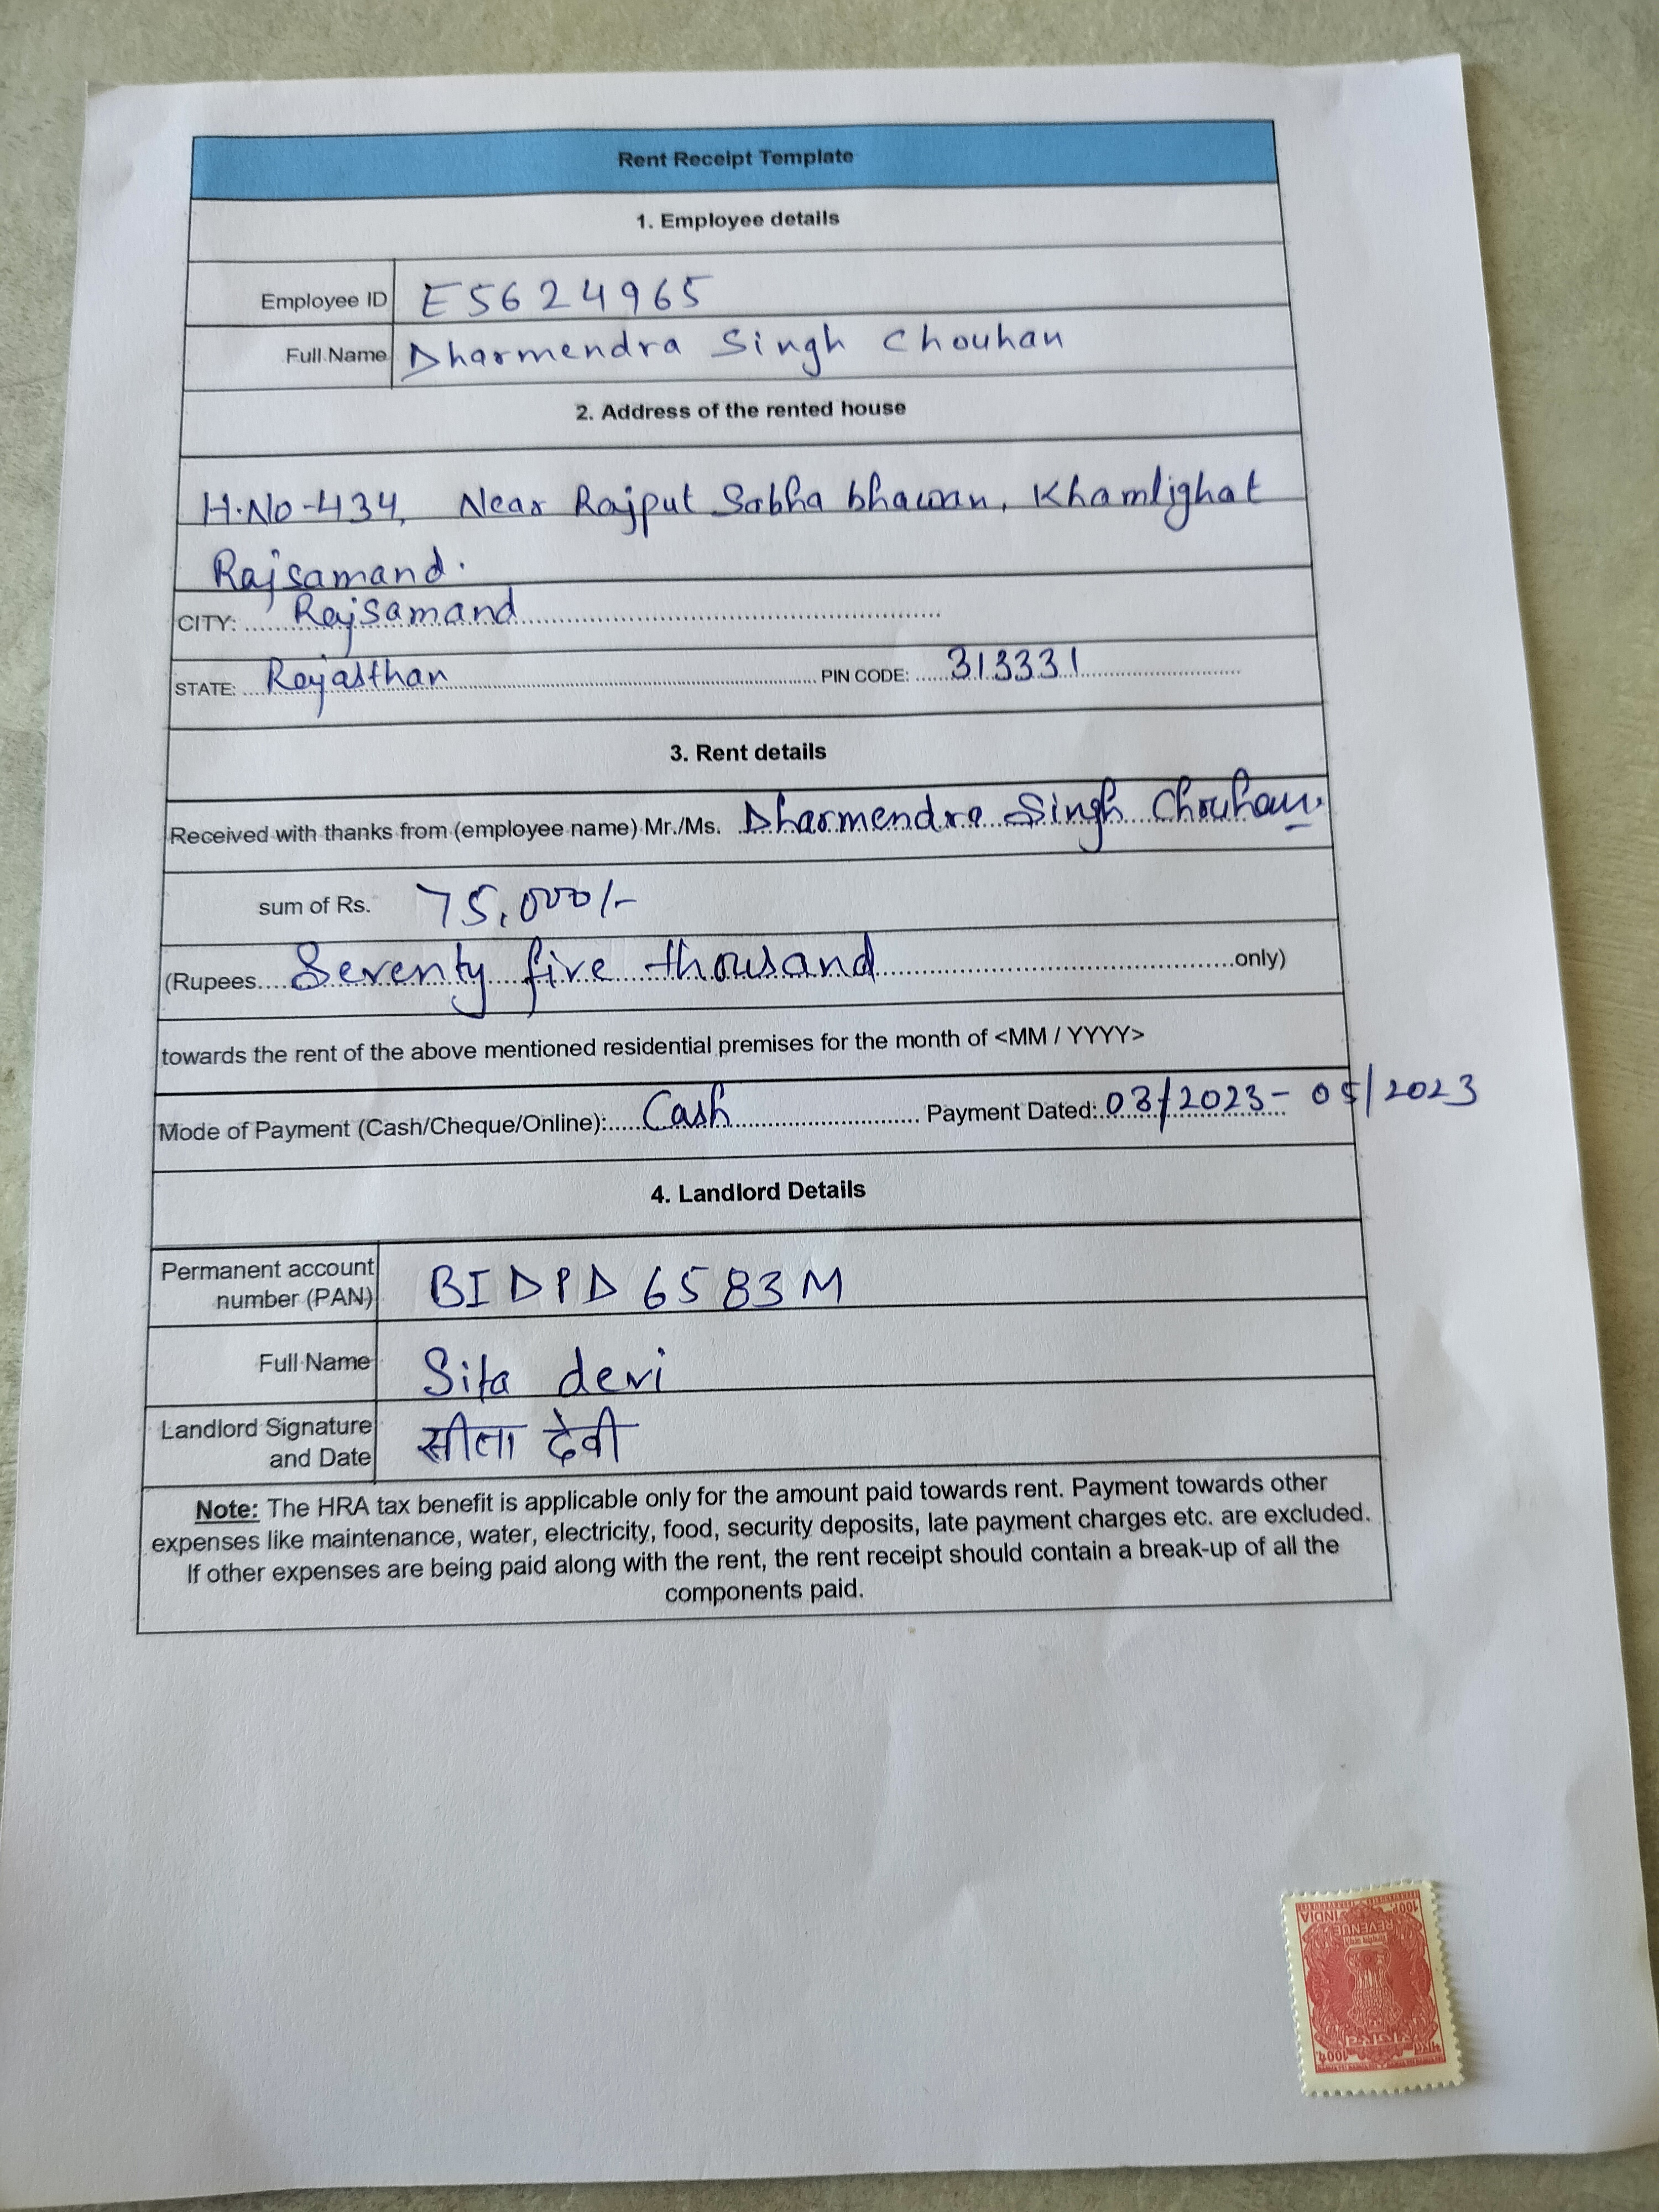 Rent Receipt Template
1. Employee details
Employee ID E5624965
Full Name Dharmendra Singh Chouhan
2. Address of the rented house
H.No-434, Near Rajput Sabha bhawan, Khamlighat
Rajsamand.
CITY: Rajsamand
STATE: Rajasthan PIN CODE: 313331
3. Rent details
Received with thanks from (employee name) Mr./Ms. Dharmendra Singh Chouhan.
sum of Rs. 75,000/-
(Rupees Seventy five thousand only)
towards the rent of the above mentioned residential premises for the month of <MM / YYYY>
Mode of Payment (Cash/Cheque/Online): Cash Payment Dated: 03/2023 - 05/2023
4. Landlord Details
Permanent account
number (PAN) BIDPD6583M
Full Name Sita devi
Landlord Signature
and Date सीता देवी
Note: The HRA tax benefit is applicable only for the amount paid towards rent. Payment towards other
expenses like maintenance, water, electricity, food, security deposits, late payment charges etc. are excluded.
If other expenses are being paid along with the rent, the rent receipt should contain a break-up of all the
components paid.
भारत 100प.
राजस्व
REVENUE
INDIA 100P.